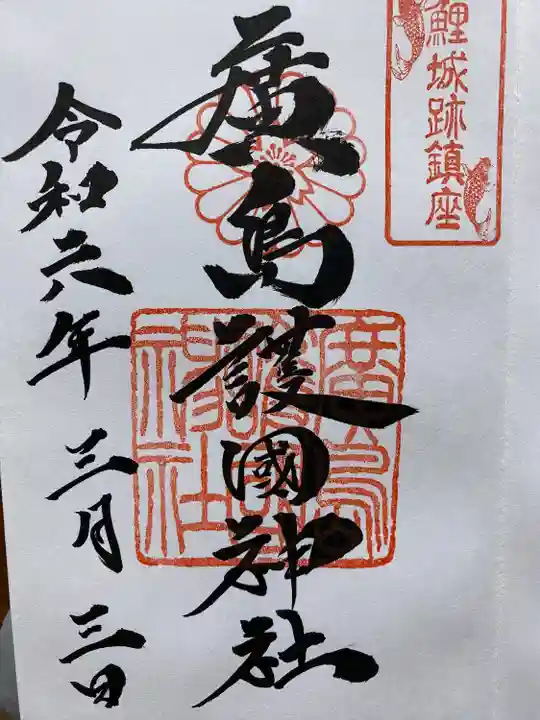 鯉城跡鎮座
廣島護國神社
廣島護國神社
令和六年三月三日